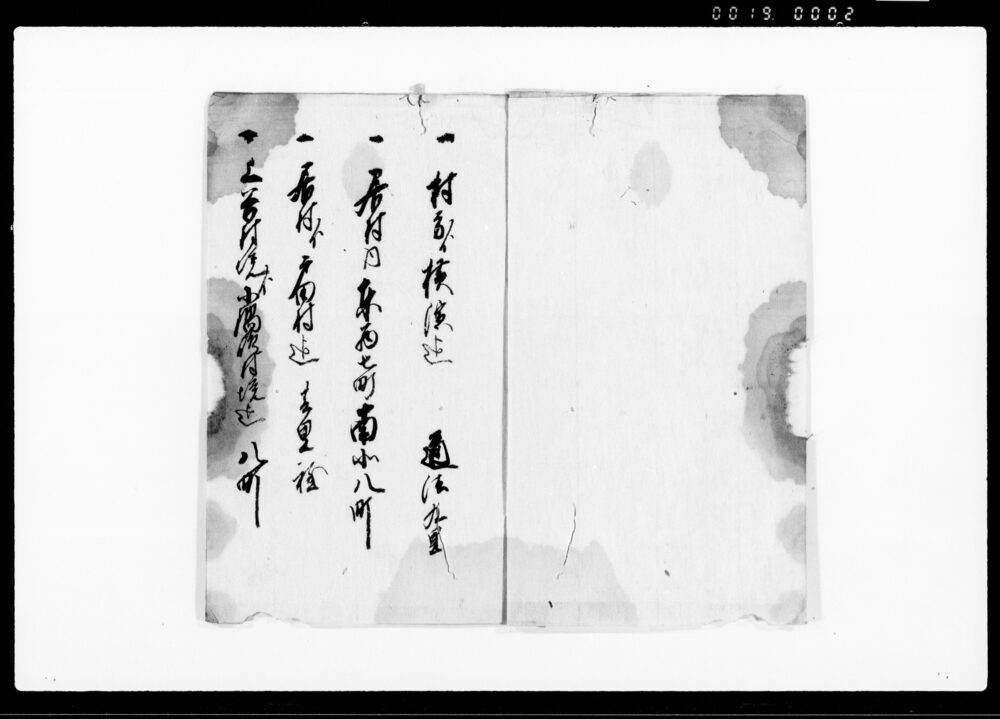 0019. 0002
一 村ゟ横濱迄 道法九里
一 居村内東西七町南北八町
一 居村ゟ戸田村迄 壱里程
一 上谷村境ゟ小 村境迄 八町